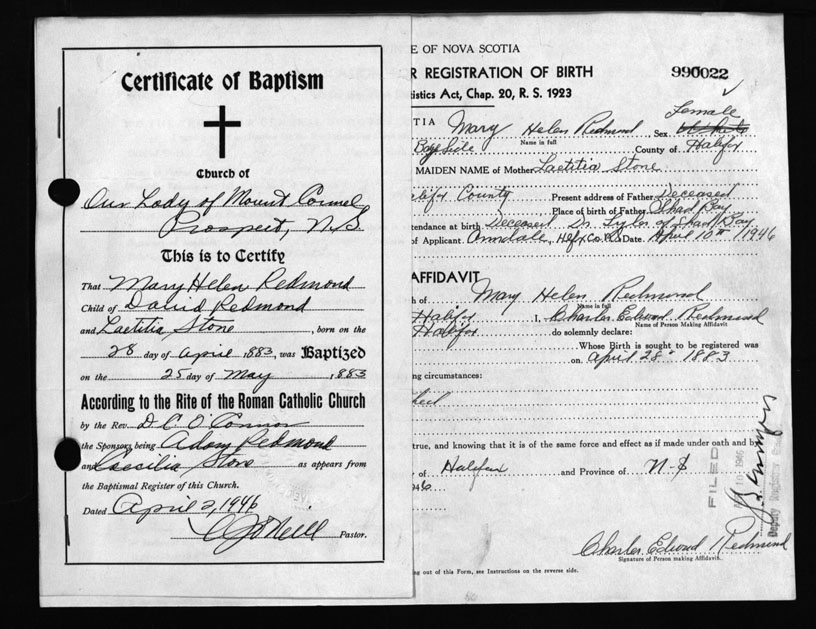 Certificate of Baptism
Church of
Our Lady of Mount Carmel
Prospect, N.S.
This is to Certify
That Mary Helen Redmond
Child of David Redmond
and Laetitia Stone, born on the
28 day of April, 1883, was Baptized
on the 25 day of May, 1883
According to the Rite of the Roman Catholic Church
by the Rev. D. C. O'Connor
the Sponsors being Adam Redmond
and Caecilia Stone as appears from
the Baptismal Register of this Church.
Dated April 2, 1946
Pastor.
E OF NOVA SCOTIA
R REGISTRATION OF BIRTH 990022
tistics Act, Chap. 20, R. S. 1923
Female
TIA Mary Helen Redmond, Sex
Name in full
Side County of Halifax
MAIDEN NAME of Mother Laetitia Stone
alifax County Present address of Father Deceased
Place of birth of Father Shad Bay
ttendance at birth Deceased Dr. of Shad Bay
of Applicant Armdale, Hfx Co. Date April 10th 1946
AFFIDAVIT
h of Mary Helen Redmond
Name in full
Halifax I, Charles Edward Redmond
Name of Person Making Affidavit
Halifax do solemnly declare:
Whose Birth is sought to be registered was
on April 28th 1883
ng circumstances:
true, and knowing that it is of the same force and effect as if made under oath and by
of Halifax and Province of N-S
946
FILED
Charles Edward Redmond
Signature of Person making Affidavit.
ng out of this Form, see Instructions on the reverse side.